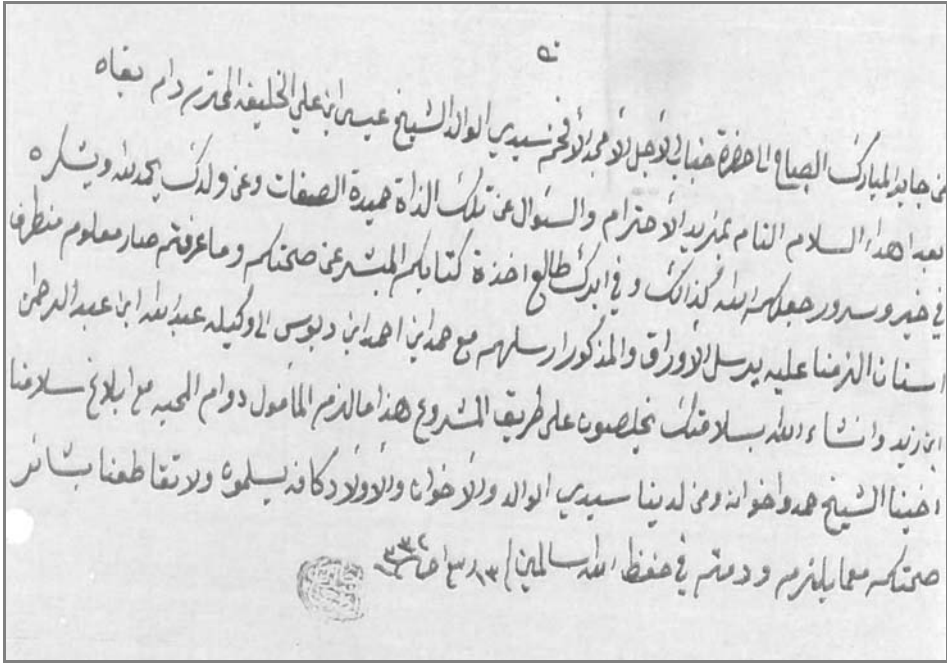 من جابر المبارك الصباح الى حضرة جناب الأجل الأمجد الأفخم سيدي الوالد الشيخ عيسى ابن علي الخليفه المحترم دام بقاه
بعد اهداء السلام التام بمزيد الأحترام والسئوال عن تلك الذاة حميدة الصفات وعن ولدك بحمد الله ويشكره
في خير وسرور جعلكم الله كذالك و في ابرك طالع اخذة كتابكم المبشر عن صحتكم وما عرفتم صار معلوم منطرف
استاننا الزمنا عليه يرسل الأوراق والمذكور ارسلهم مع حمد ابن احمد ابن دبوس الى وكيله عبد الله ابن عبد الرحمن
ابن زيد وانشاء الله بسلامتك يخلصون على طريق المشروع هذا مالزم المأمول دوام المحبه مع ابلاغ سلامنا
اخينا الشيخ حمد واخوانه ومن لدينا سيدي الوالد والأخوان والأولاد كافه يسلمون ولا تقاطعنا بشائر
صحتكم معما يلزم ودمتم في حفظ الله سالمين